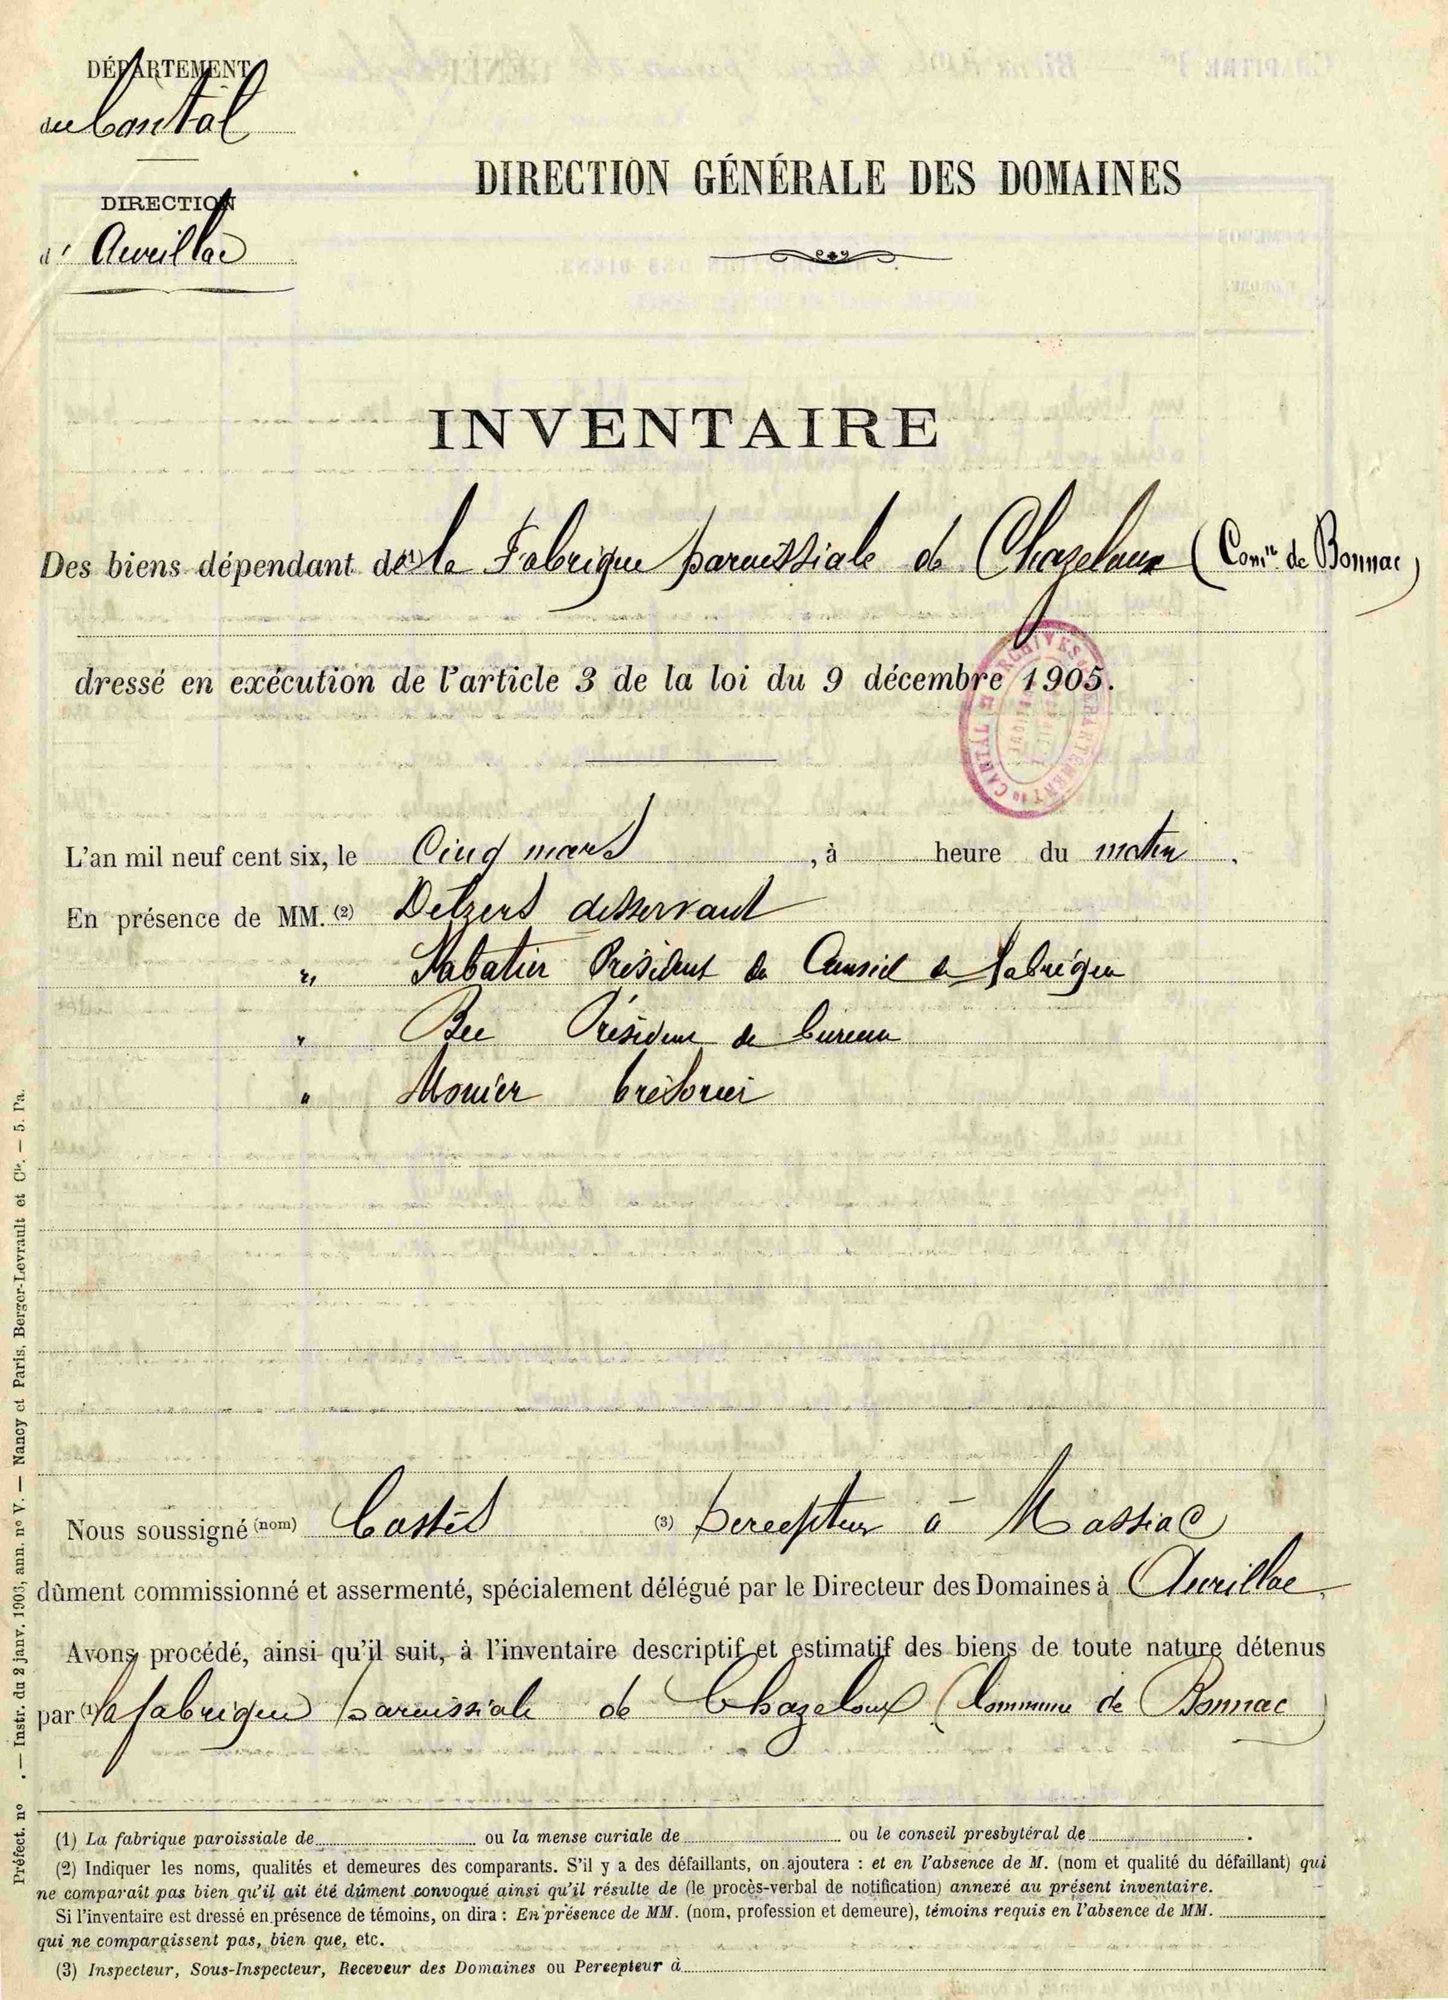 DÉPARTEMENT
du Cantal
DIRECTION
d' Aurillac
DIRECTION GÉNÉRALE DES DOMAINES
INVENTAIRE
Des biens dépendant de (1) la Fabrique paroissiale de Chazeloux (Comne de Bonnac)
dressé en exécution de l'article 3 de la loi du 9 décembre 1905.
ARCHIVES DÉPARTEMENT du CANTAL
L'an mil neuf cent six, le Cinq mars, à heure du matin,
En présence de MM. (2) Delzers desservant
" Sabatier Président du Conseil de fabrique
" Bec Président du bureau
" Monier trésorier
Nous soussigné (nom) Castès (3) percepteur à Massiac
dûment commissionné et assermenté, spécialement délégué par le Directeur des Domaines à Aurillac,
Avons procédé, ainsi qu'il suit, à l'inventaire descriptif et estimatif des biens de toute nature détenus
par (1) la fabrique paroissiale de Chazeloux (Commune de Bonnac)
(1) La fabrique paroissiale de ou la mense curiale de ou le conseil presbytéral de .
(2) Indiquer les noms, qualités et demeures des comparants. S'il y a des défaillants, on ajoutera : et en l'absence de M. (nom et qualité du défaillant) qui
ne comparaît pas bien qu'il ait été dûment convoqué ainsi qu'il résulte de (le procès-verbal de notification) annexé au présent inventaire.
Si l'inventaire est dressé en présence de témoins, on dira : En présence de MM. (nom, profession et demeure), témoins requis en l'absence de MM.
qui ne comparaissent pas, bien que, etc.
(3) Inspecteur, Sous-Inspecteur, Receveur des Domaines ou Percepteur à
Préfect. no . — Instr. du 2 janv. 1906, ann. no V. — Nancy et Paris, Berger-Levrault et Cie. — 5. Pa.